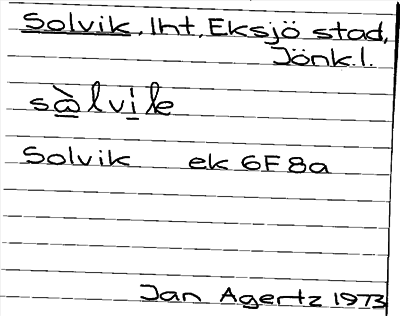 Solvik, lht, Eksjö stad,
Jönk.l.
sàlvik
Solvik ek 6F8a
Jan Agertz 1973